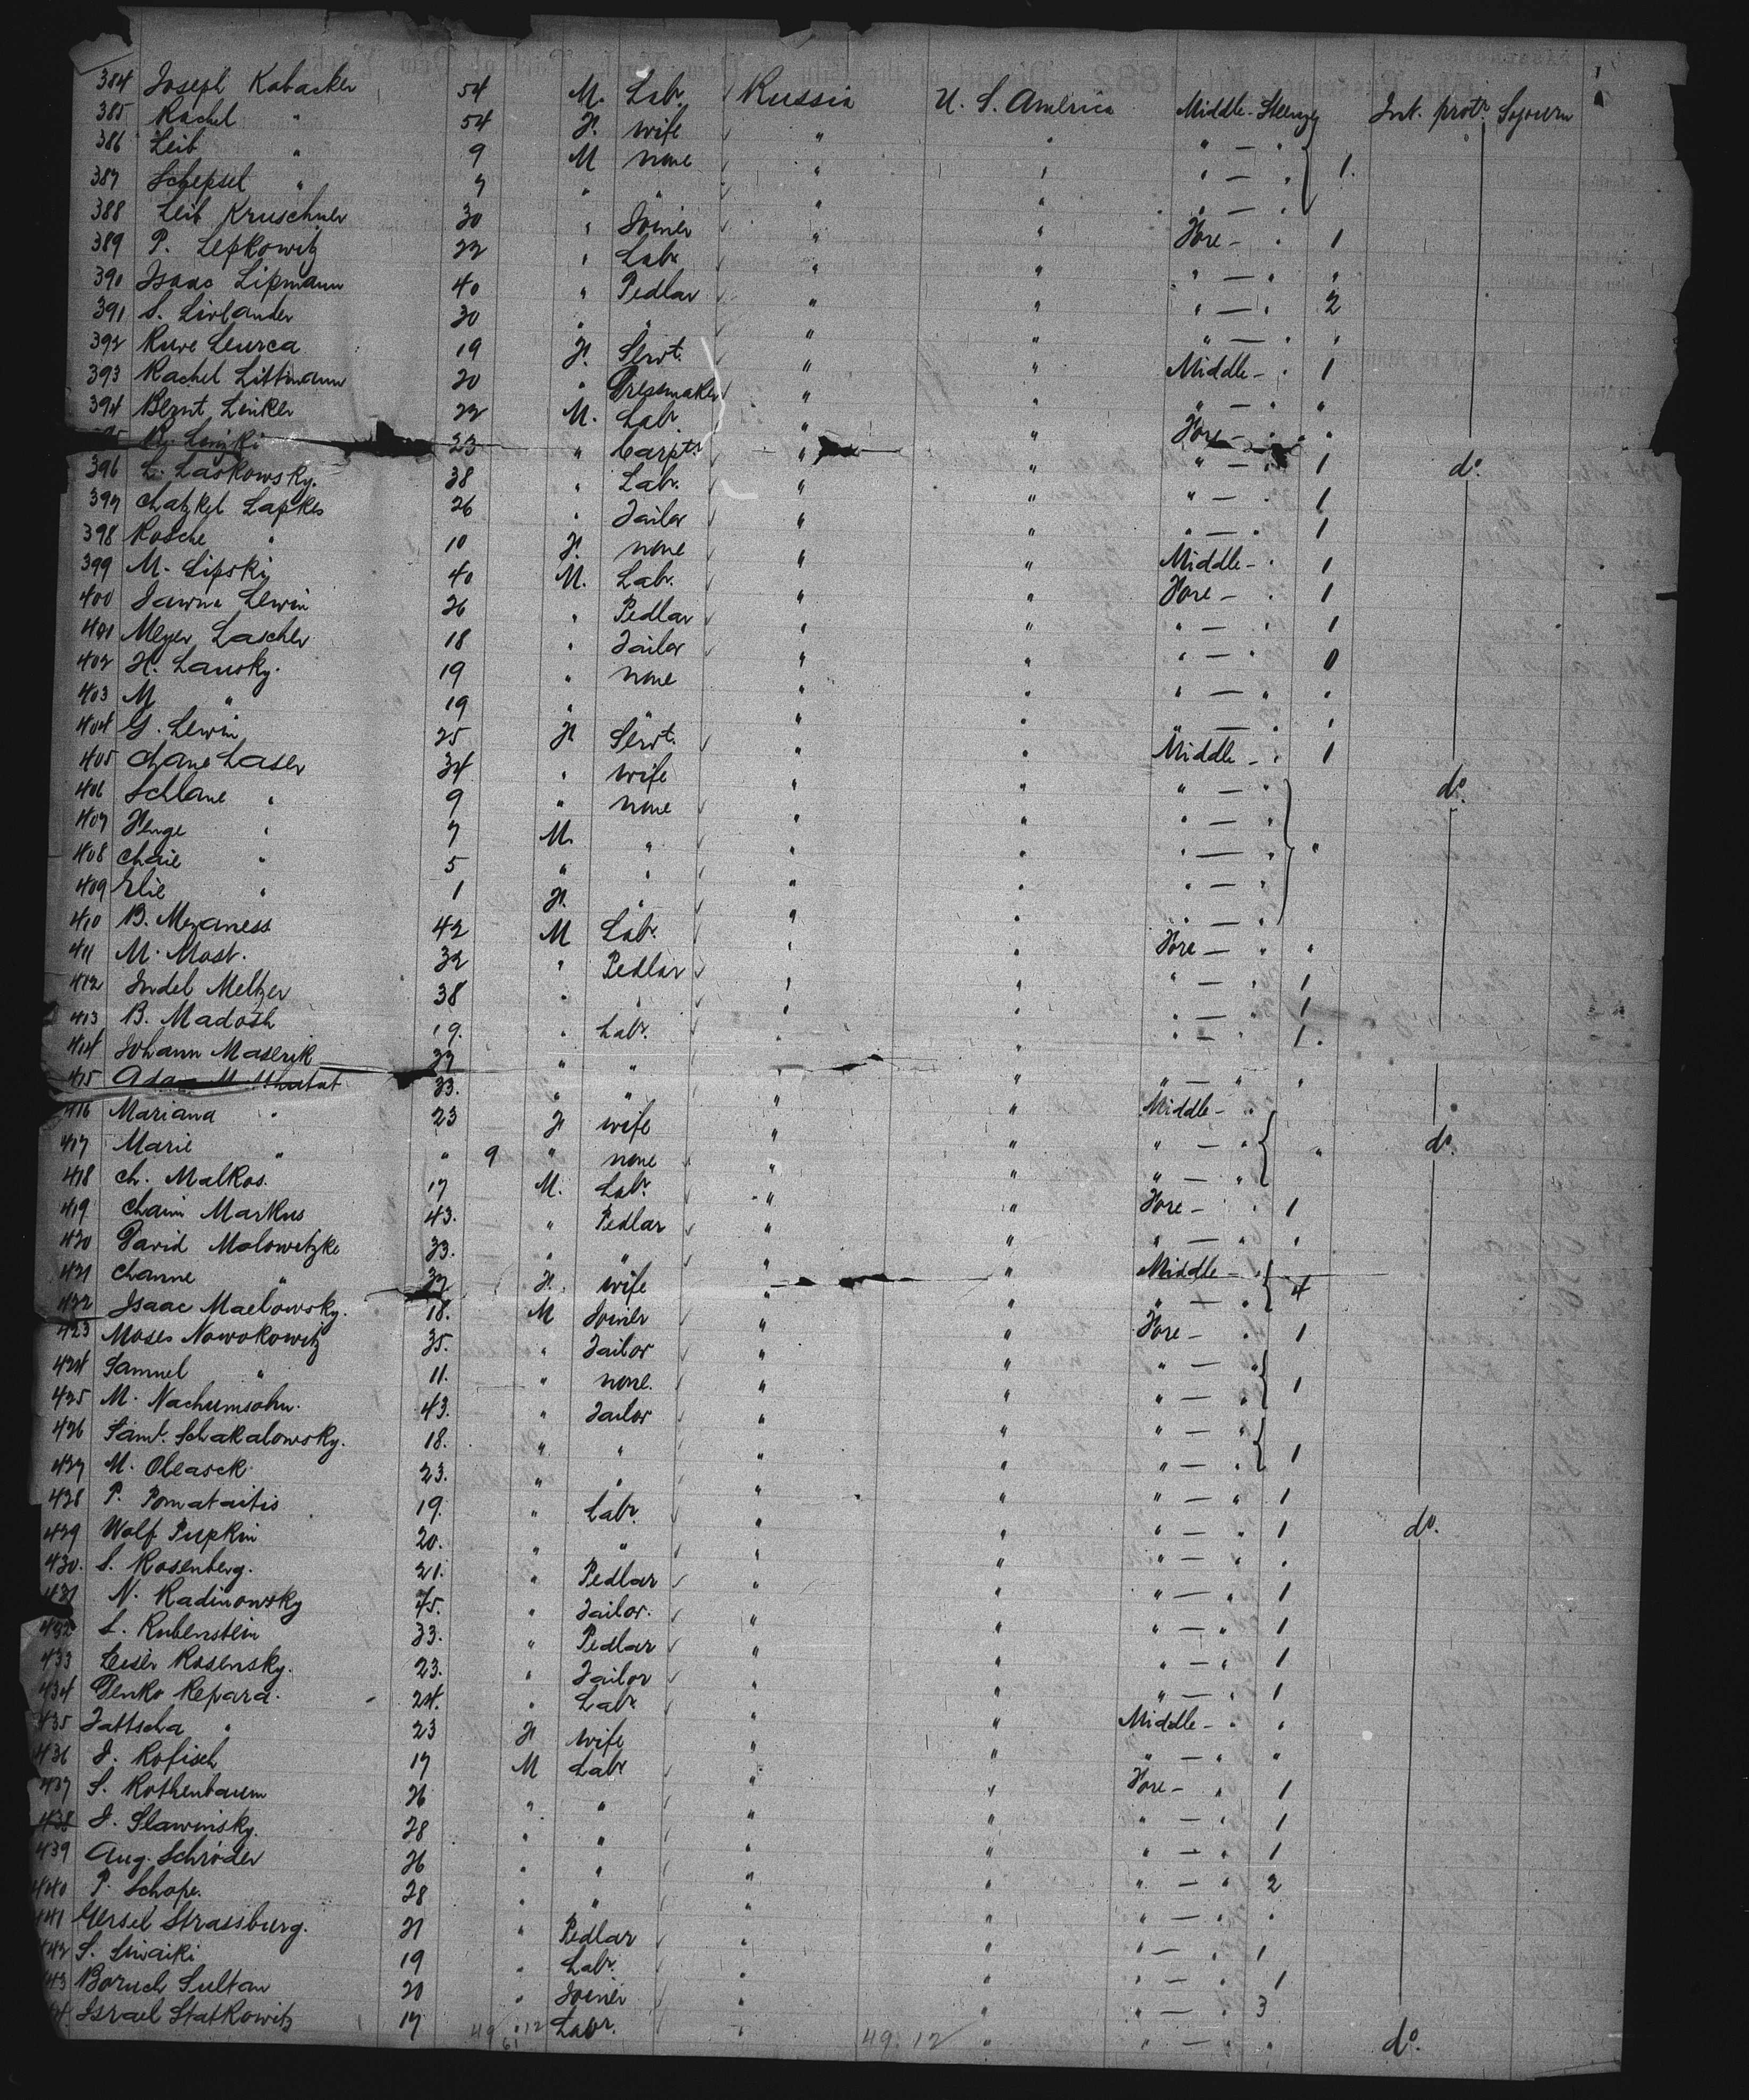 384 Joseph Kabacker 54 M. Labr. Russia U. S. America Middle - Steerage Int. protr. Sojourn
385 Rachel " 54 F. wife " " " — "
386 Leib " 9 M none " " " — " 1.
387 Schepsel " 7 " " " " " — "
388 Leib Kruschner 30 " Joiner " " Fore - " 1
389 P. Lefkowitz 22 " Labr. " " " — " "
390 Isaac Lipmann 40 " Pedlar " " " — " 2
391 S. Livlander 30 " " " " " — " "
392 Ruwe Leurca 19 F. Servt. " " Middle - " 1
393 Rachel Littmann 20 " Dressmaker " " " — " "
394 Bernt Linker 22 M. Labr. " " Fore - " "
23 " Carptr. " " " — " 1 do.
396 L. Laskowsky. 38 " Labr. " " " — " 1
397 Chatzkel Lapkes 26 " Tailor " " " — " 1
398 Rosche " 10 F. none " " Middle - " 1
399 M. Lipski 40 M. Labr. " " Fore - " 1
400 Lewin 26 " Pedlar " " " — " 1
401 Meyer Lascher 18 " Tailor " " " — " 0
402 H. Lansky. 19 " none " " " — " "
403 M " 19 " " " " " — " "
404 G. Lewin 25 F Servt. " " Middle - " 1
405 Chane Laser 34 " wife " " " — " do.
406 Schlane " 9 " none " " " — "
407 " 7 M. " " " " — " "
408 Chaie " 5 " " " " " — "
409 Elie " 1 F. " " " " — "
410 B. Mezaness 42 M Labr. " " Fore - " "
411 M. Most. 32 " Pedlar " " " — " 1
412 Judel Meltzer 38 " " " " " — " 1
413 B. Madosh 19. " Labr. " " " — " 1.
414 Johann Maserik 27 " " " " " — " "
415 Adam 33. " " " " Middle - "
416 Mariana " 23 F wife " " " — " " do.
417 Marie " " 9 " none " " " — "
418 Ch. Malkos. 17 M. Labr. " " Fore - " 1
419 Chaim Markus 43. " Pedlar " " " — " "
420 David Malowitzke 33. " " " " Middle - "
421 Channe " 32 F. wife " " " — " 4
422 Isaac Maelowsky. 18. M Joiner " " Fore - " 1
423 Moses Nowokowitz 35. " Tailor " " " — "
424 Samuel " 11. " none. " " " — " 1
425 M. Nachumsohn. 43. " Tailor " " " — "
426 Saml. Schakalowsky. 18. " " " " " — " 1
427 M. Oleasck 23. " " " " " — " 1
428 P. Pomataitis 19. " Labr. " " " — " 1 do.
429 Wolf Pupkin 20. " " " " " — " "
430. S. Rosenberg. 21. " Pedlar " " " — " 1
431 N. Radinowsky 45. " Tailor. " " " — " 1
432 L. Rubenstein 33. " Pedlar " " " — " 1
433 Leiser Rosensky. 23. " Tailor " " " — " 1
434 Denko Repara. 24. " Labr. " " Middle - " "
435 Tattscha " 23 F wife " " " — " "
436 J. Rofisch 17 M Labr " " Fore - " 1
437 S. Rothenbaum 26 " " " " " — " 1
438 J. Slawinsky. 28 " " " " " — " 1
439 Aug. Schröder 26 " " " " " — " 2
440 P. Schope. 28 " " " " " — " "
441 Gersel Strassburg. 21 " Pedlar " " " — " 1
442 S. 19 " Labr. " " " — " 1
43 Boruch Sultan 20 " Joiner " " " — " 3
Israel Statkowitz 17 49 12 Labr. " 49 12 " " — " " do.